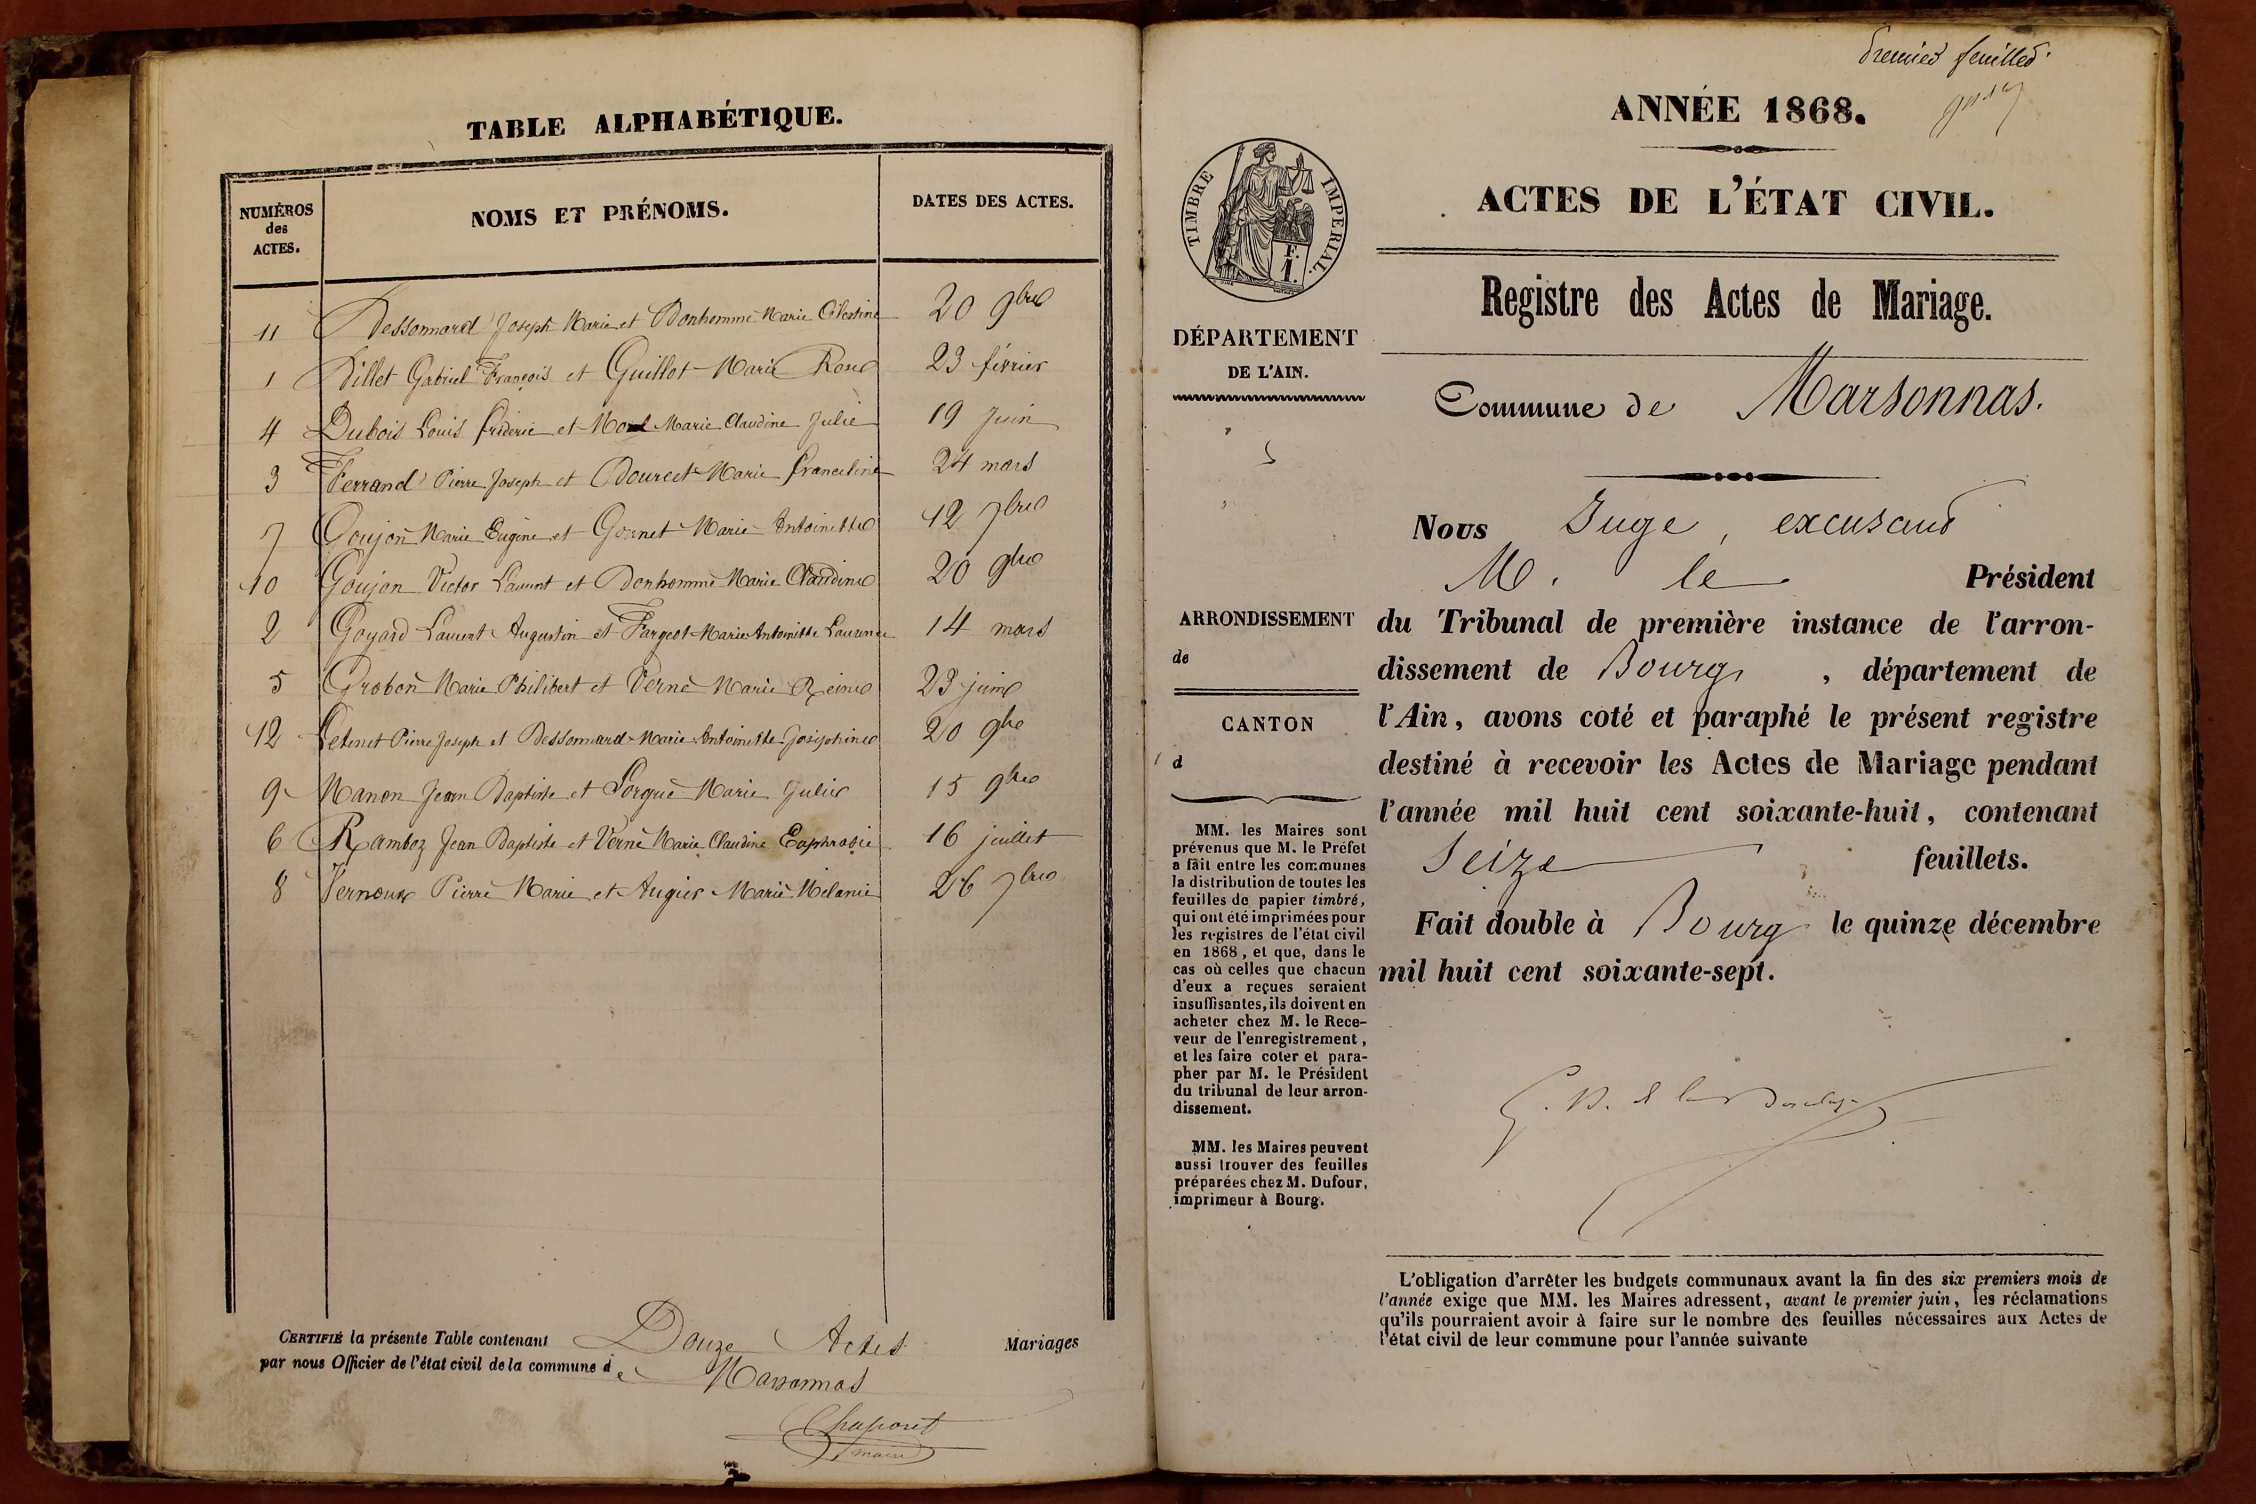 TABLE ALPHABÉTIQUE.
NUMÉROS
des
ACTES.
NOMS ET PRÉNOMS.
DATES DES ACTES.
11 Dessonnard Joseph Marie et Bonhomme Marie Célestine 20 9bre
1 Dillet Gabriel François et Guillot Marie Rose 23 février
4 Dubois Louis Fréderic et Morel Marie Claudine Julie 19 Juin
3 Ferrand Pierre Joseph et Bourcet Marie Franceline 24 mars
7 Goujon Marie Eugène et Gonnet Marie Antoinette 12 7bre
10 Goujon Victor Laurent et Bonhomme Marie Claudine 20 9bre
2 Goyard Laurent Augustin et Fargeot Marie Antoinette Laurence 14 mars
5 Grobon Marie Philibert et Verne Marie Reine 23 juin
12 Pierre Joseph et Dessonnard Marie Antoinette Joséphine 20 9bre
9 Manon Jean Baptiste et Sorgue Marie Julie 15 9bre
6 Ramboz Jean Baptiste et Verne Marie Claudine Euphrasie 16 juillet
8 Vernoux Pierre Marie et Augier Marie Mélanie 26 7bre
CERTIFIÉ la présente Table contenant Douze Actes Mariages
par nous Officier de l'état civil de la commune de Marsonnas
Chaponet
maire
Premier feuillet.
ANNÉE 1868.
ACTES DE L'ÉTAT CIVIL.
TIMBRE IMPERIAL.
F.
1.
Registre des Actes de Mariage.
DÉPARTEMENT
DE L'AIN.
Commune de Marsonnas.
Nous Juge, excusant
M. le Président
ARRONDISSEMENT
de
CANTON
d
du Tribunal de première instance de l'arron-
dissement de Bourg, département de
l'Ain, avons coté et paraphé le présent registre
destiné à recevoir les Actes de Mariage pendant
l'année mil huit cent soixante-huit, contenant
Seize feuillets.
Fait double à Bourg le quinze décembre
mil huit cent soixante-sept.
MM. les Maires sont
prévenus que M. le Préfet
a fait entre les communes
la distribution de toutes les
feuilles de papier timbré,
qui ont été imprimées pour
les registres de l'état civil
en 1868, et que, dans le
cas où celles que chacun
d'eux a reçues seraient
insuffisantes, ils doivent en
acheter chez M. le Rece-
veur de l'enregistrement,
et les faire coter et para-
pher par M. le Président
du tribunal de leur arron-
dissement.
MM. les Maires peuvent
aussi trouver des feuilles
préparées chez M. Dufour,
imprimeur à Bourg.
L'obligation d'arrêter les budgets communaux avant la fin des six premiers mois de
l'année exige que MM. les Maires adressent, avant le premier juin, les réclamations
qu'ils pourraient avoir à faire sur le nombre des feuilles nécessaires aux Actes de
l'état civil de leur commune pour l'année suivante